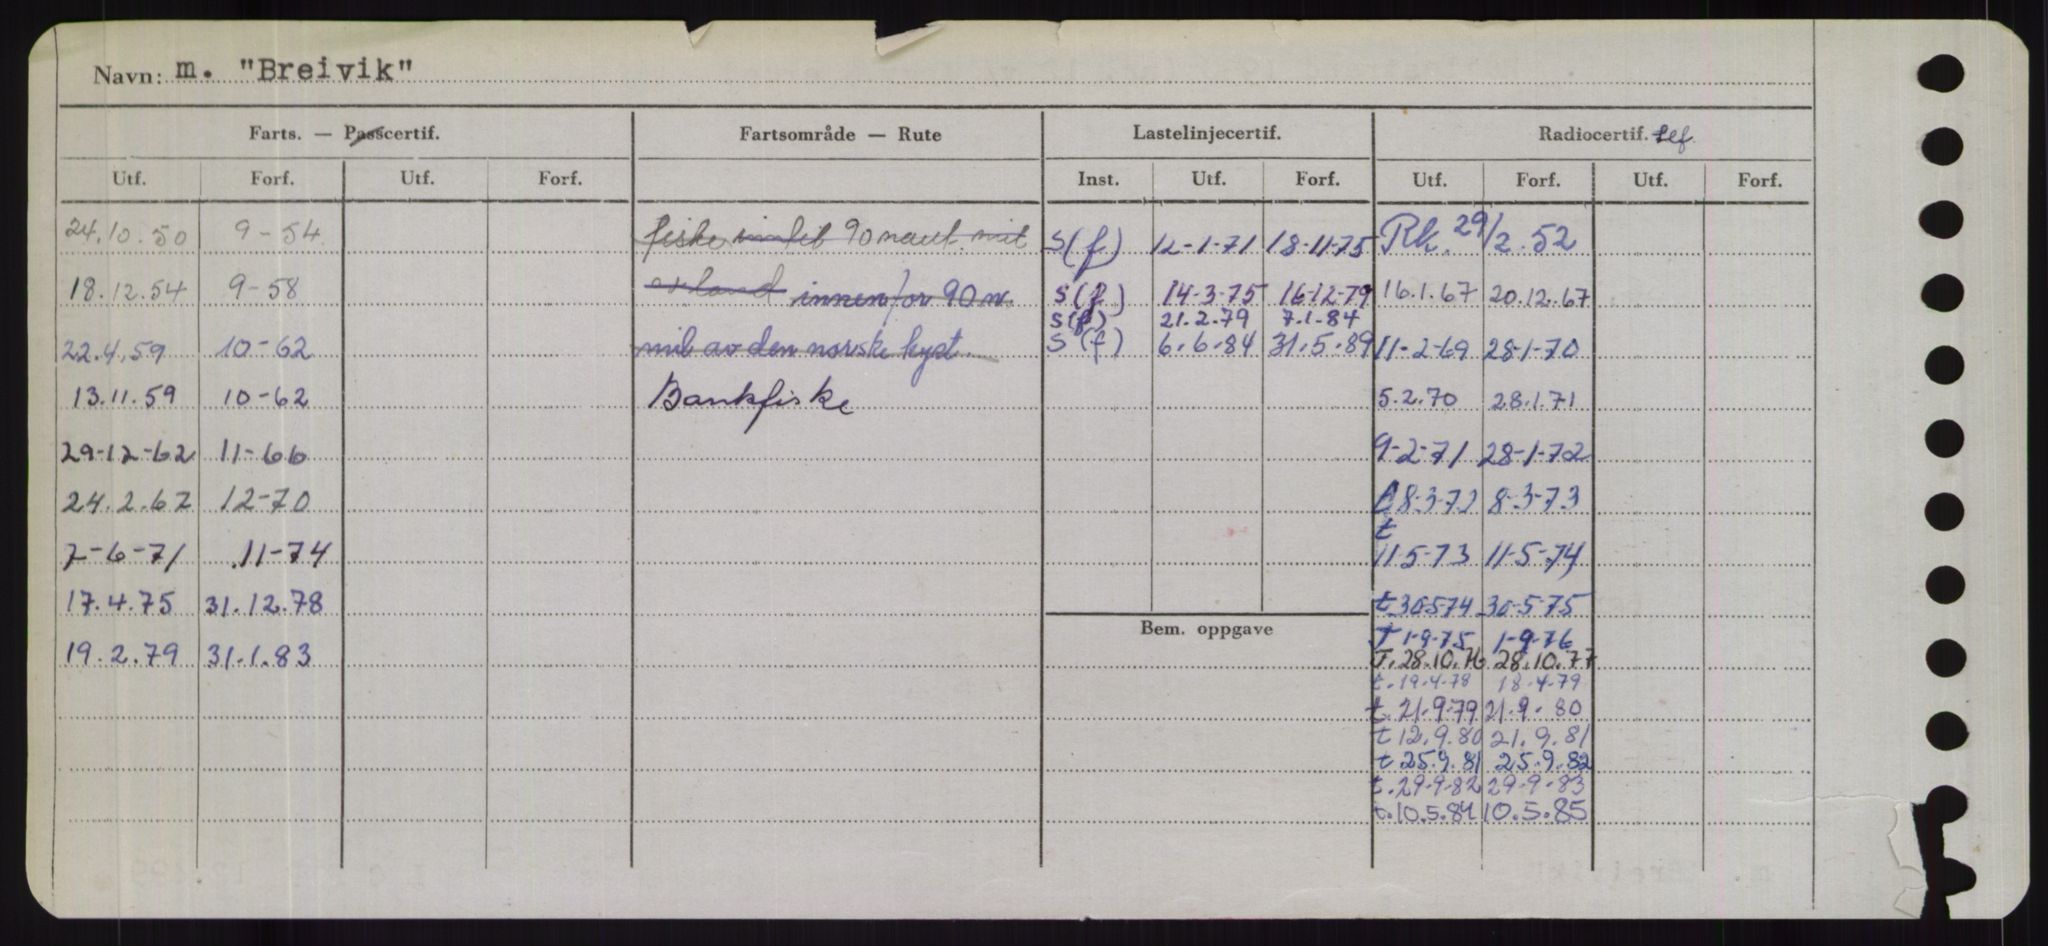 Navn: m. "Breivik"
Farts. — Passcertif. Fartsområde — Rute Lastelinjecertif. Radiocertif. tlf.
Utf. Forf. Utf. Forf. Inst. Utf. Forf. Utf. Forf. Utf. Forf.
24.10.50 9-54 fiske inntil 90 naut. mil S(f) 12-1-71 18-11-75 Rk. 29/2.52
18.12.54 9-58 av land innenfor 90 n. S(f) 14-3-75 16-12-79 16.1.67 20.12.67
S(f) 21.2.79 7.1.84
22.4.59 10-62 mil av den norske kyst. S(f) 6.6.84 31.5.89 11-2-69 28-1-70
13.11.59 10-62 Bankfiske 5.2.70 28.1.71
29-12-62 11-66 9-2-71 28-1-72
24.2.67 12-70 8-3-72 8-3-73
t
7-6-71 11-74 11-5-73 11-5-74
17.4.75 31.12.78 t 30-5-74 30-5-75
Bem. oppgave T 1-9-75 1-9-76
19.2.79 31.1.83 T. 28.10.76 28.10.77
t. 19-4-78 18-4-79
t. 21.9.79 21.9.80
t 12.9.80 21.9.81
t 25.9.81 25.9.82
t. 29-9-82 29-9-83
t. 10.5.84 10.5.85